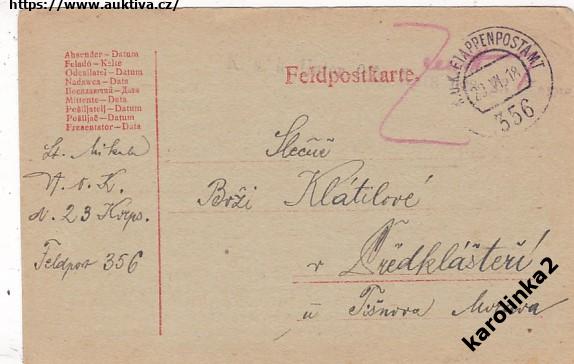 https://www.auktiva.cz/
Absender – Datum
Feladó – Kelte
Odesílatel – Datum
Nadawca – Data
Mittente – Data
Pošiljatelj – Datum
Pošiljač – Datum
Prezentator – Data
Feldpostkarte.
K.u.K. ETAPPENPOSTAMT
356
Lt. Mikula
d. 23 Korps.
Feldpost 356
Slečně
Boži Klátilové
v Předklášteří
u Tišnova Morava
karolinka2